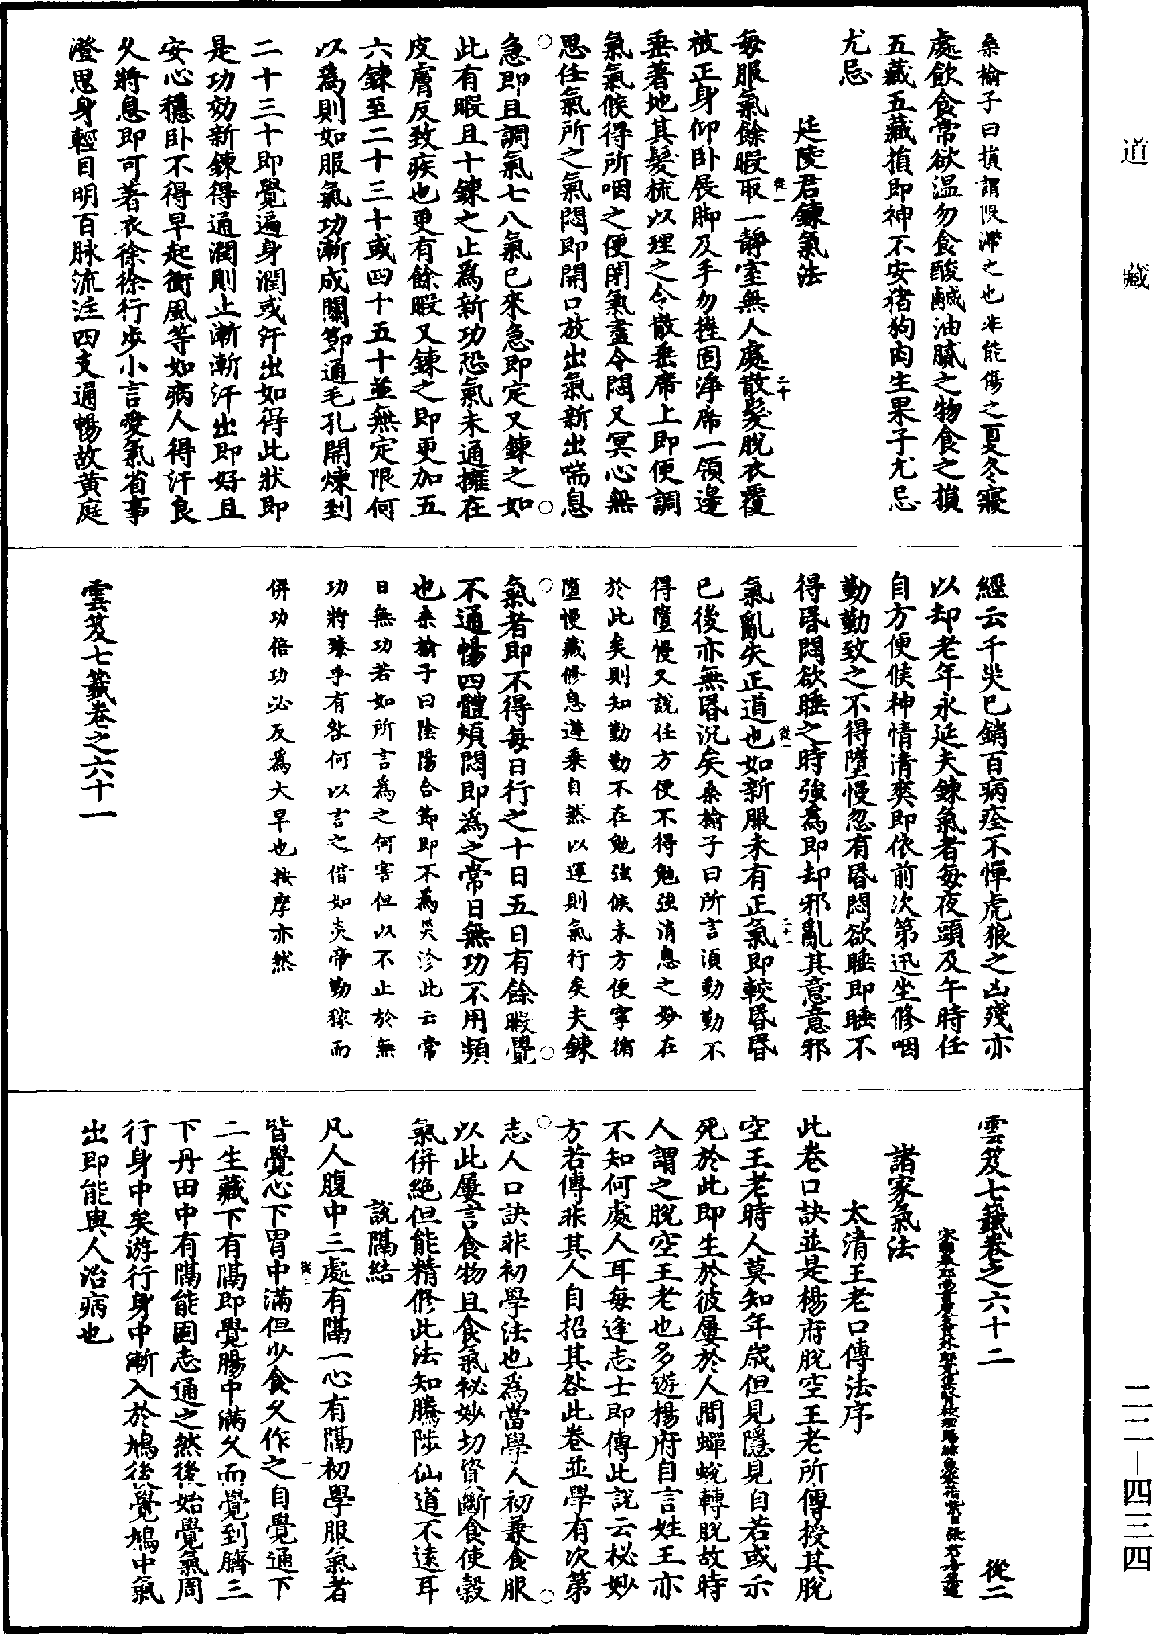 道藏
桑榆子曰損謂假滯之也非能傷之夏冬寢
處飲食常欲溫勿食酸鹹油膩之物食之損
五藏五藏損即神不安猪狗肉生果子尤忌
尤忌
延陵君鍊氣法
每服氣餘暇取一靜室無人處散髮脫衣覆
被正身仰卧展脚及手勿捲固淨席一領邊
垂著地其髮梳以理之令散垂席上即便調
氣氣候得所咽之便閉氣盡令悶又冥心無
思任氣所之氣悶即開口放出氣新出喘息
急即且調氣七八氣已來急即定又鍊之如
此有暇且十鍊之止為新功恐氣未通擁在
皮膚反致疾也更有餘暇又鍊之即更加五
六鍊至二十三十或四十五十並無定限何
以為則如服氣功漸成關節通毛孔開煉到
二十三十即覺遍身潤或汗出如得此狀即
是功効新鍊得通潤則止漸漸汗出即好且
安心穩卧不得早起衝風等如病人得汗良
久將息即可著衣徐徐行步小言愛氣省事
澄思身輕目明百脉流注四支通暢故黃庭
經云千災已銷百病痊不憚虎狼之凶殘亦
以却老年永延夫鍊氣者每夜頭及午時任
自方便候神情清爽即依前次第迅坐修咽
勤勤致之不得墮慢忽有昏悶欲睡即睡不
得昏悶欲睡之時強為即却邪亂其意意邪
氣亂失正道也如新服未有正氣即較昏昏
已後亦無昏況矣桑榆子曰所言須勤勤不
得墮慢又說任方便不得勉強消息之妙在
於此矣則知勤勤不在勉強候未方便寧衛
墮慢藏修息遵乘自然以運則氣行矣夫鍊
氣者即不得每日行之十日五日有餘暇覺
不通暢四體煩悶即為之常日無功不用頻
也桑榆子曰陰陽合節即不為災沴此云常
日無功若如所言為之何害但以不止於無
功將臻乎有咎何以言之借如炎帝勤稼而
併功倍功必反為大旱也按摩亦然
雲笈七籤卷之六十一
雲笈七籤卷之六十二 從二
諸家氣法
太清王老口傳法序
此卷口訣並是楊府脫空王老所傳授其脫
空王老時人莫知年歲但見隱見自若或示
死於此即生於彼屢於人間蟬蛻轉脫故時
人謂之脫空王老也多遊楊府自言姓王亦
不知何處人耳每逢志士即傳此說云祕妙
方若傳非其人自招其咎此卷並學有次第
志人口訣非初學法也為當學人初兼食服
以此屢言食物且食氣祕妙切資斷食使穀
氣併絕但能精修此法知騰陟仙道不遠耳
說隔結
凡人腹中三處有隔一心有隔初學服氣者
皆覺心下胃中滿但少食久作之自覺通下
二生藏下有隔即覺腸中滿久而覺到臍三
下丹田中有隔能固志通之然後始覺氣周
行身中矣游行身中漸入於鳩後覺鳩中氣
出即能與人治病也
二二—四三四